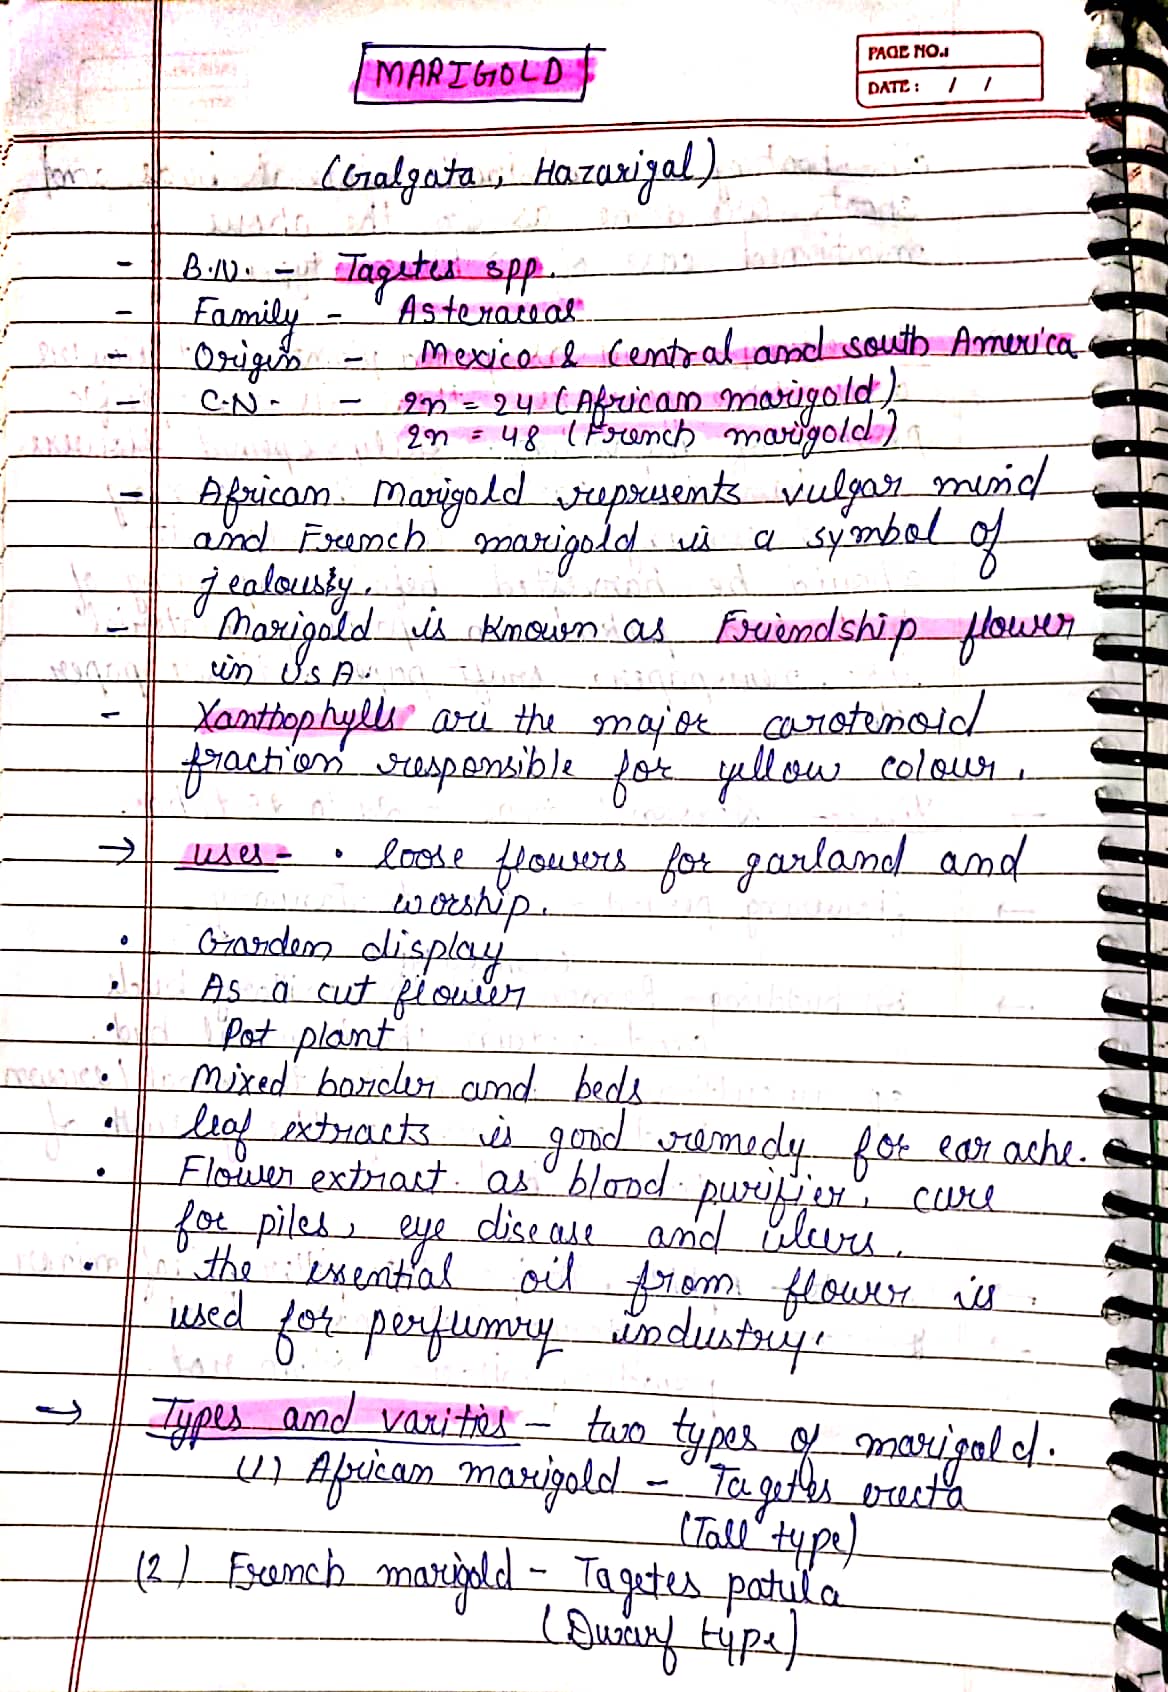 MARIGOLD
PAGE NO.:
DATE: / /
(Galgata, Hazarigal)
- B.N. - Tagetes spp.
- Family - Asteraceae
- Origin - Mexico & Central and south America
- C.N. - 2n = 24 (African marigold)
2n = 48 (French marigold)
- African Marigold represents vulgar mind
and French marigold is a symbol of
jealousy.
- Marigold is known as Friendship flower
in USA.
- Xanthophylls are the major carotenoid
fraction responsible for yellow colour.
→ uses - • loose flowers for garland and
worship.
• Garden display
• As a cut flower
• Pot plant
• Mixed border and beds
• leaf extracts is good remedy for ear ache.
• Flower extract as blood purifier, cure
for piles, eye disease and ulcers.
• the essential oil from flower is
used for perfumry industry.
→ Types and varities - two types of marigold.
(1) African marigold - Tagetes erecta
(Tall type)
(2) French marigold - Tagetes patula
(Dwarf type)